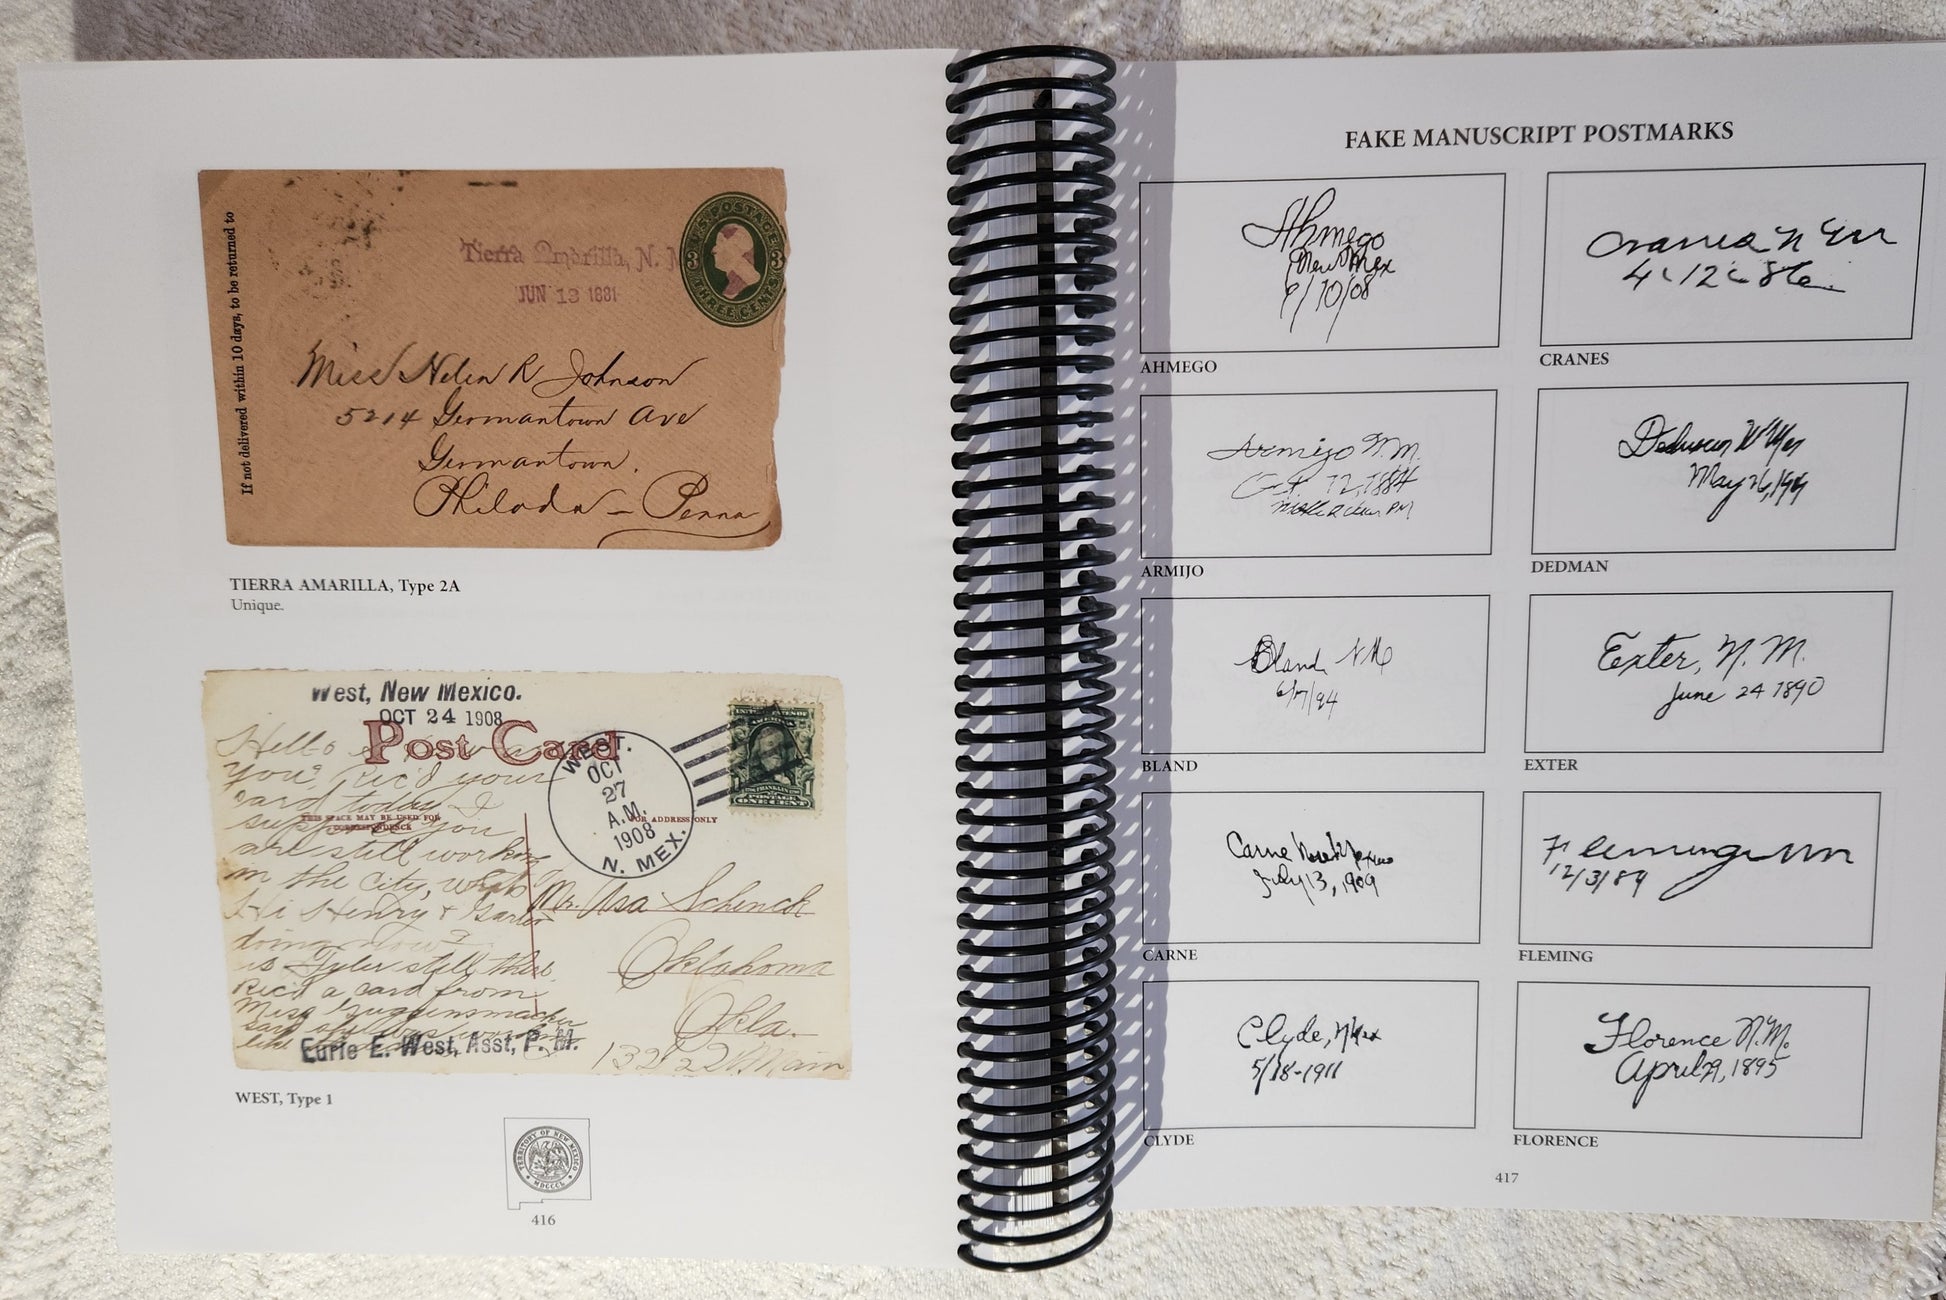 If not delivered within 10 days, to be returned to
Tierra Amarilla, N. M
JUN 13 1881
U.S. POSTAGE
3 3
THREE CENTS
Miss Helen R Johnson
5214 Germantown Ave
Germantown.
Philada - Penna
TIERRA AMARILLA, Type 2A
Unique.
West, New Mexico.
OCT 24 1908
Post Card
WEST.
OCT
27
A.M.
1908
N. MEX.
UNITED STATES OF
AMERICA
FRANKLIN
POSTAGE 1
ONE CENT
THIS SPACE MAY BE USED FOR
CORRESPONDENCE
FOR ADDRESS ONLY
Hello
you? Rec'd your
card today I
suppose you
are still working
in the city,
Hi Henry +
doing now?
is Tyler still there
Rec'd a card from
Miss
like
Mr. Asa Schenck
Oklahoma
Okla.
Main
Eurie E. West, Asst, P. M.
WEST, Type 1
TERRITORY OF NEW MEXICO
MDCCCL
416
FAKE MANUSCRIPT POSTMARKS
Ahmego
New Mex
6/10/08
AHMEGO
Cranes N Mex
4 12 86
CRANES
Armijo N.M.
Oct. 12, 1884
PM
ARMIJO
Dedman N Mex
May 26, 
DEDMAN
Bland NM
6/7/94
BLAND
Exter, N. M.
June 24 1890
EXTER
Carne New Mexico
July 13, 1909
CARNE
Fleming NM
12/3/89
FLEMING
Clyde, N Mex
5/18-1911
CLYDE
Florence N.M.
April 29, 1895
FLORENCE
417